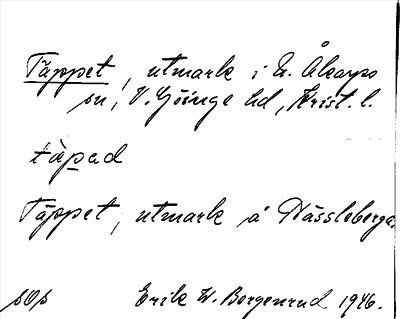 Täppet, utmark i N. Åkarps
sn, V. Göinge hd, Krist. l.
täpad
Täppet, utmark å Nässleberga.
sOs Erik W. Borgenrud 1946.